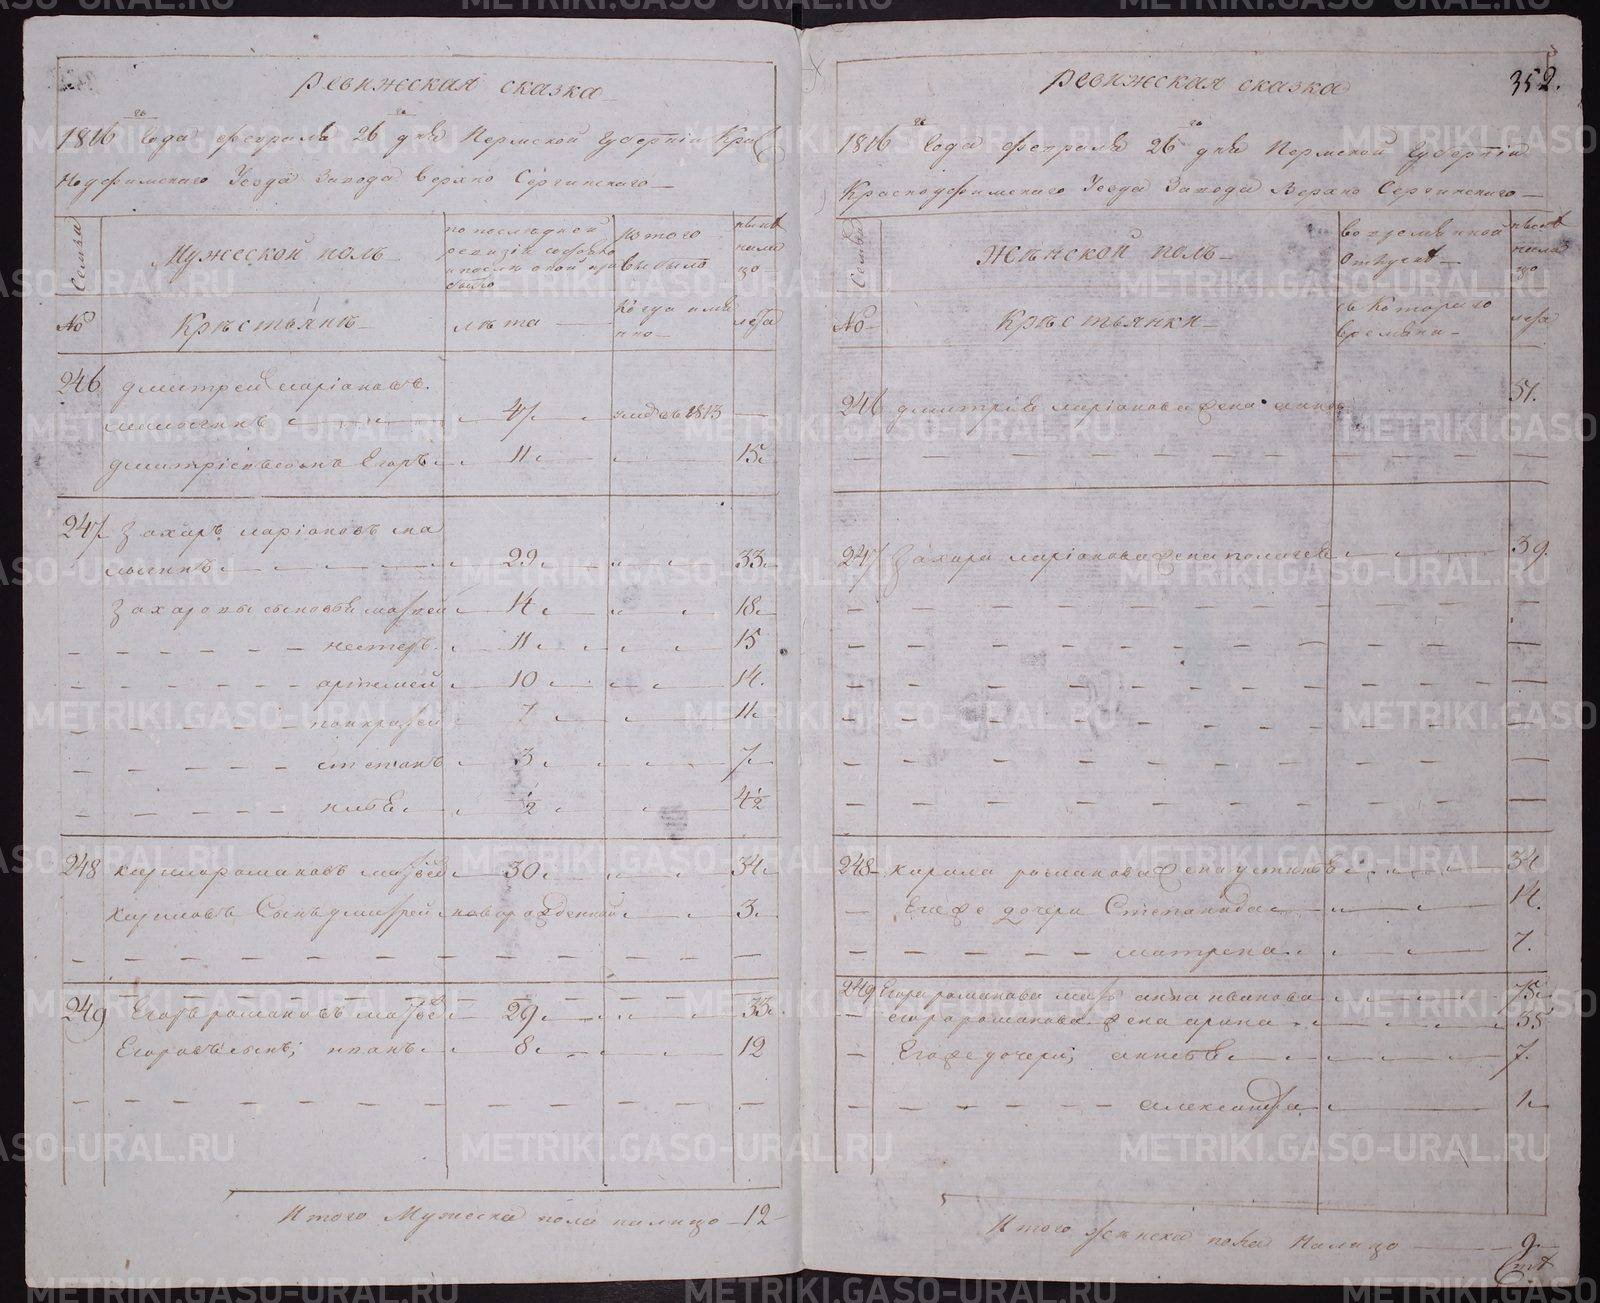 Ревижская сказка
1816 года февраля 26 дня Пермской Губернiи Крас
ноуфимского Уезда Завода Верхно Сергинского
Семьи
Мужеской полъ
по последной
ревизiи состояло
и после оной при
было
Из того
выбыло
ныне
нали
цо
№
Крѣстьянѣ
лѣта
Когда имя
нно
лета
246
дмитрей ларiоновъ
47
1813
дмитрiевъ сынъ Егоръ
11
15
247
Захаръ ларiоновъ ма
29
33
Захаровы сыновья матвей
14
18
нестеръ
11
15
артемей
10
14.
панкратей
7
11
степанъ
3
7
1/2
4 1/2
248
романовъ матвеев
30
34
сынъ дмитрей новорожденной
3
249
Егоръ романовъ матвее
29
33
Егоровъ сынъ; иванъ
8
12
Итого Мужеска пола налицо 12
Ревижская сказка
352.
1816 года февраля 26 дня Пермской Губернiи
Красноуфимского Уезда Завода Верхно Сергинского
Семьи
Жѣнской полъ
во времянной
отлучке
ныне
налиц
цо
№
Крѣстьянки
съ котораго
времяни
лета
246
дмитрiя ларiонова жена анна
51.
247
Захара ларiонова жена пелагея
39.
248
романова жена устинья
34
Егоже дочери Степанида
14.
матрена
7.
249
Егора романова мать анна иванова
75
егора романова жена арина
35
Егоже дочери;
7.
александра
1
Итого женска пола налицо 9
METRIKI.GASO-URAL.RU